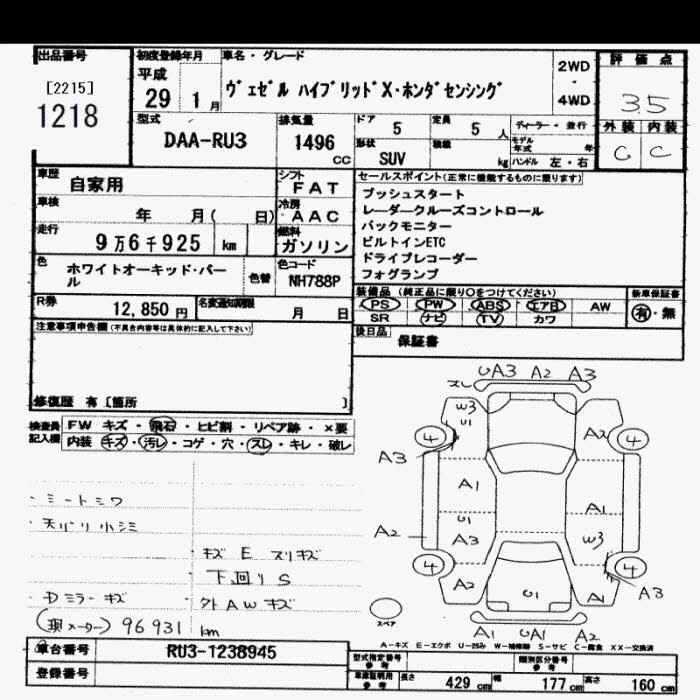 出品番号
[2215]
1218
初度登録年月
平成
29 1月
車名・グレード
ヴェゼル ハイブリッドX・ホンダセンシング
2WD
・
4WD
評価点
3.5
外装 内装
C C
型式
DAA-RU3
排気量
1496
cc
ドア
5
定員
5人
形状
SUV
積載
kg
ディーラー・並行
モデル年式 年
ハンドル 左・右
車歴
自家用
シフト
FAT
車検
年 月( 日)
冷房
AAC
走行
9万6千925 km
燃料
ガソリン
色
ホワイトオーキッド・パール
色替
色コード
NH788P
R券
12,850円
名変通知期限
月 日
セールスポイント(正常に機能するものに限ります)
プッシュスタート
レーダークルーズコントロール
バックモニター
ビルトインETC
ドライブレコーダー
フォグランプ
装備品(純正品に限り○をつけてください)
PS PW ABS エアB AW
SR ナビ TV カワ
新車保証書
有・無
後日品
保証書
注意事項申告欄(不具合内容等は具体的に記入して下さい)
修復歴 有〔箇所 〕
検査員記入欄
FW キズ・飛石・ヒビ割・リペア跡・×要
内装 キズ・汚レ・コゲ・穴・スレ・キレ・破レ
・シートシワ
・天バリ小シミ
・キズ E スリキズ
下回り S
・Dミラーキズ
・外AWキズ
(現メーター) 96931 km
UA3 A2 A3
スレ
W3
U1
4
A2
4
A3
A1
A1
U1
A3
W3
A2
4
4
A2
U1
A1
A3
A1 UA1 A2
スペア
A-キズ E-エクボ U-凹み W-補修跡 S-サビ C-腐食 XX-交換済
車台番号
RU3-1238945
登録番号
型式指定番号
参考
類別区分番号
参考
車庫証明用
参考
長さ 429 cm 幅 177 cm 高さ 160 cm